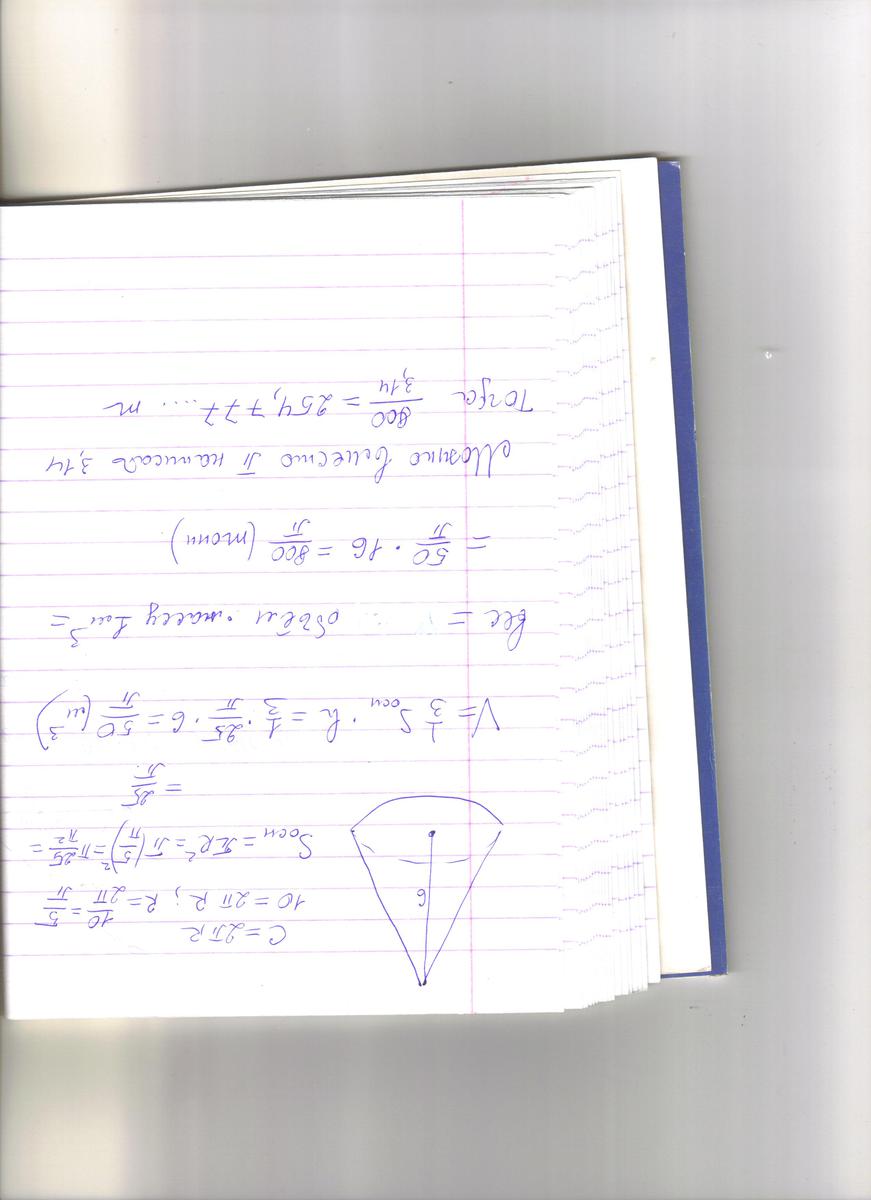 C = 2πR
10 = 2πR; R = 10/2π = 5/π
6
Sосн = πR² = π(5/π)² = π 25/π² =
= 25/π
V = 1/3 Sосн · h = 1/3 · 25/π · 6 = 50/π (см³)
Вес = объём · массу 1 см³ =
= 50/π · 16 = 800/π (тонн)
Можно вместо π написать 3,14
Тогда 800/3,14 = 254,777.... т